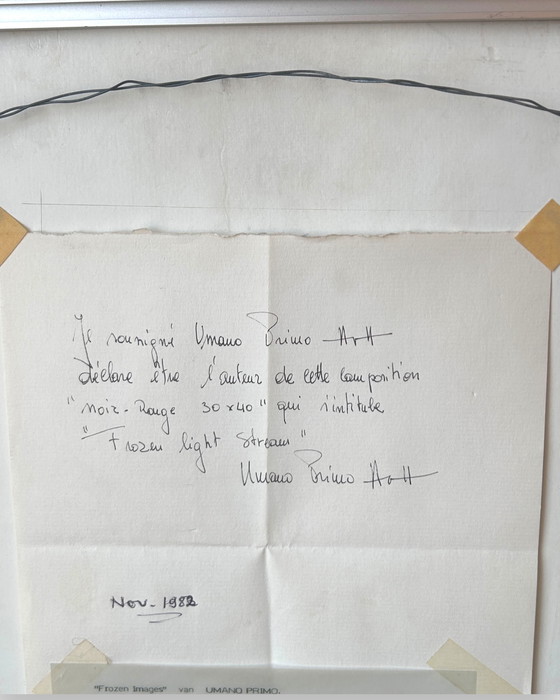 Je soussigné Umano Primo
déclare être l'auteur de cette composition
"Noir-Rouge 30x40" qui s'intitule
"Frozen light Stream"
Umano Primo
Nov-1982
"Frozen Images" van UMANO PRIMO.